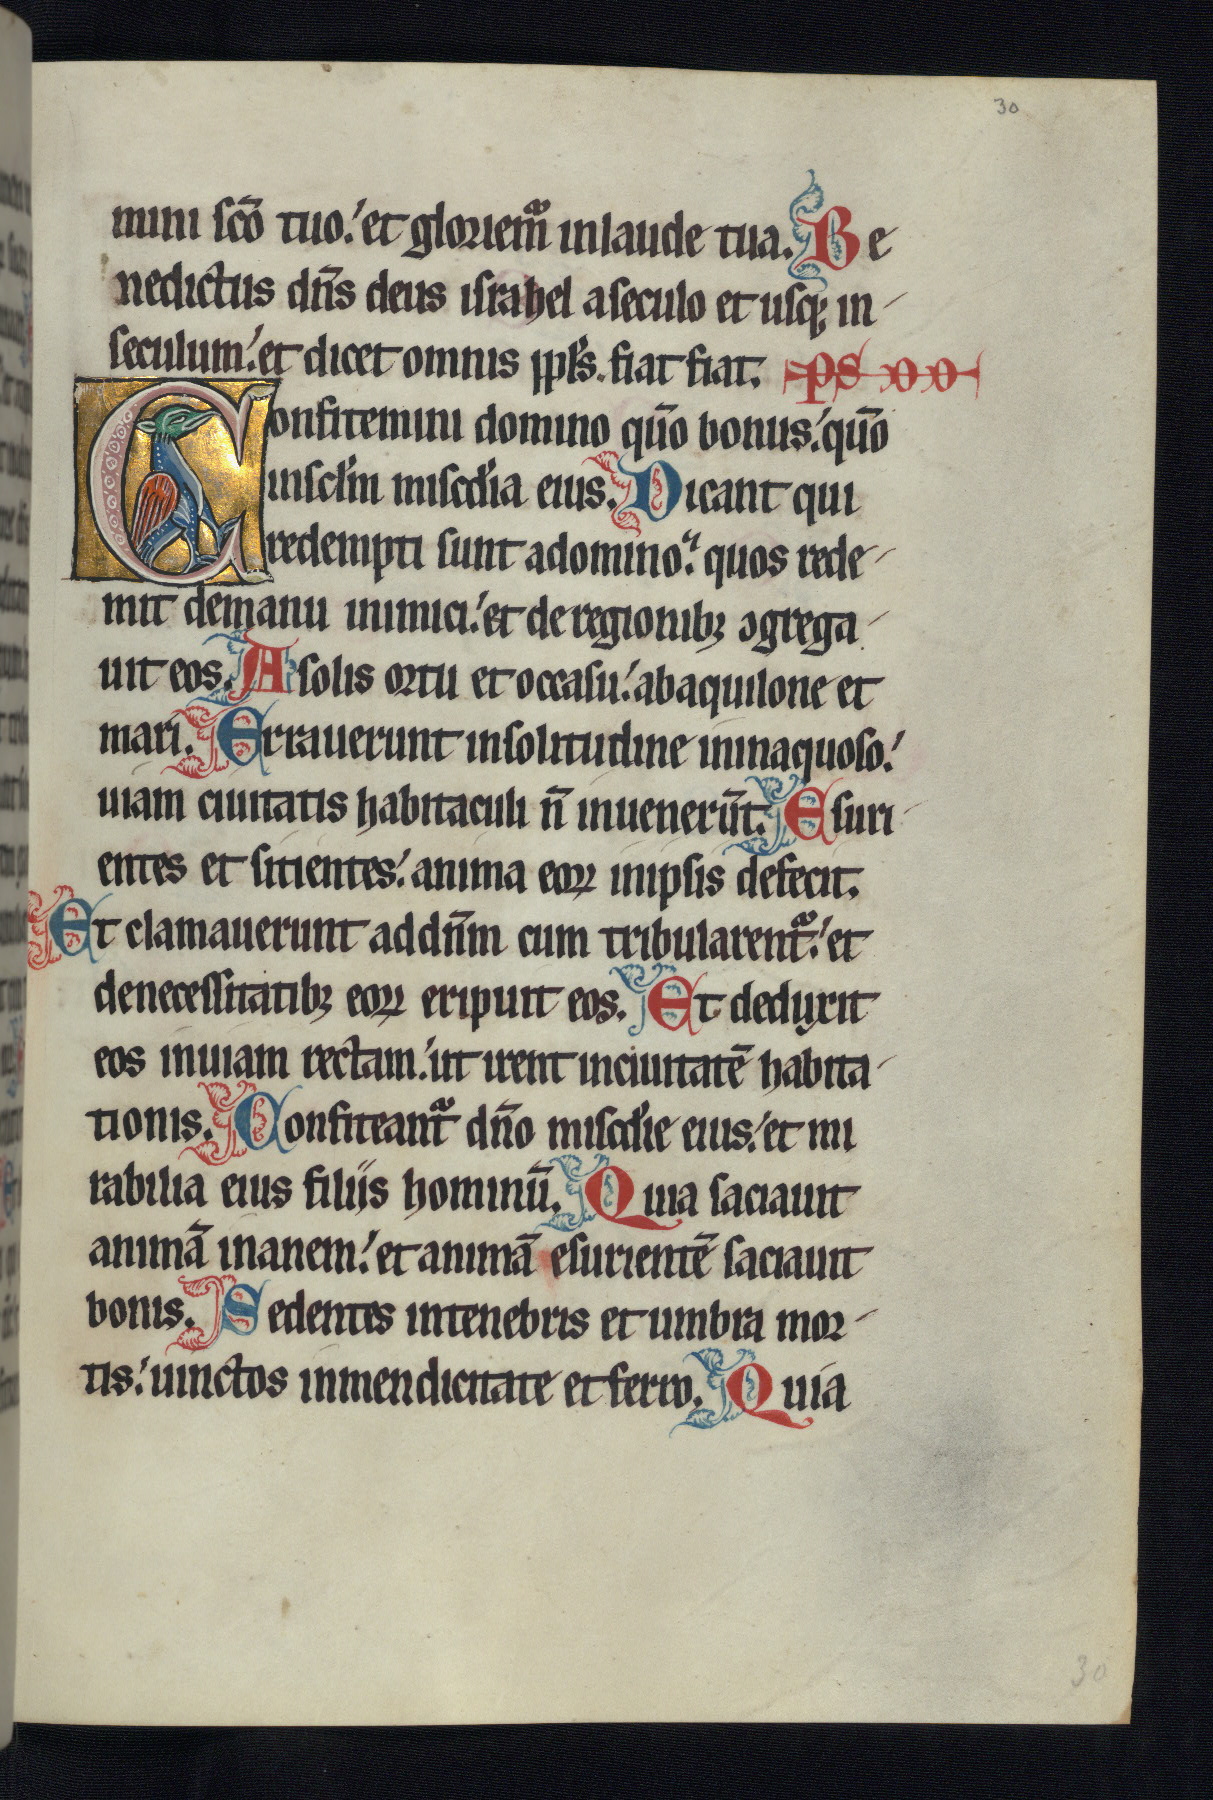 30
mini sc̄o tuo. et gloriem̄ᷓ in laude tua. Be
nedictus dn̄s deus israhel a seculo et usq; in
seculum. et dicet omnis ppl̄s. fiat fiat. ps
Confitemini domino qūo bonus. qūo
in scl̄m misc̄dia eius. Dicant qui
redempti sunt a domino. quos rede
mit de manu inimici. et de regionibꝫ ꝯgrega
uit eos. A solis ortu et occasu. ab aquilone et
mari. Errauerunt in solitudine in inaquoso.
uiam ciuitatis habitaculi n̄ inuenerūt. Esuri
entes et sitientes. anima eoꝝ in ipsis defecit.
Et clamauerunt ad dn̄m cum tribularentᷓ. et
de necessitatibꝫ eoꝝ eripuit eos. Et deduxit
eos in uiam rectam. ut irent in ciuitatē habita
tionis. Confiteantᷓ dn̄o misc̄die eius. et mi
rabilia eius filiis hominū. Quia saciauit
animā inanem. et animā esurientē saciauit
bonis. Sedentes in tenebris et umbra mor
tis. uinctos in mendicitate et ferro. Quia
30